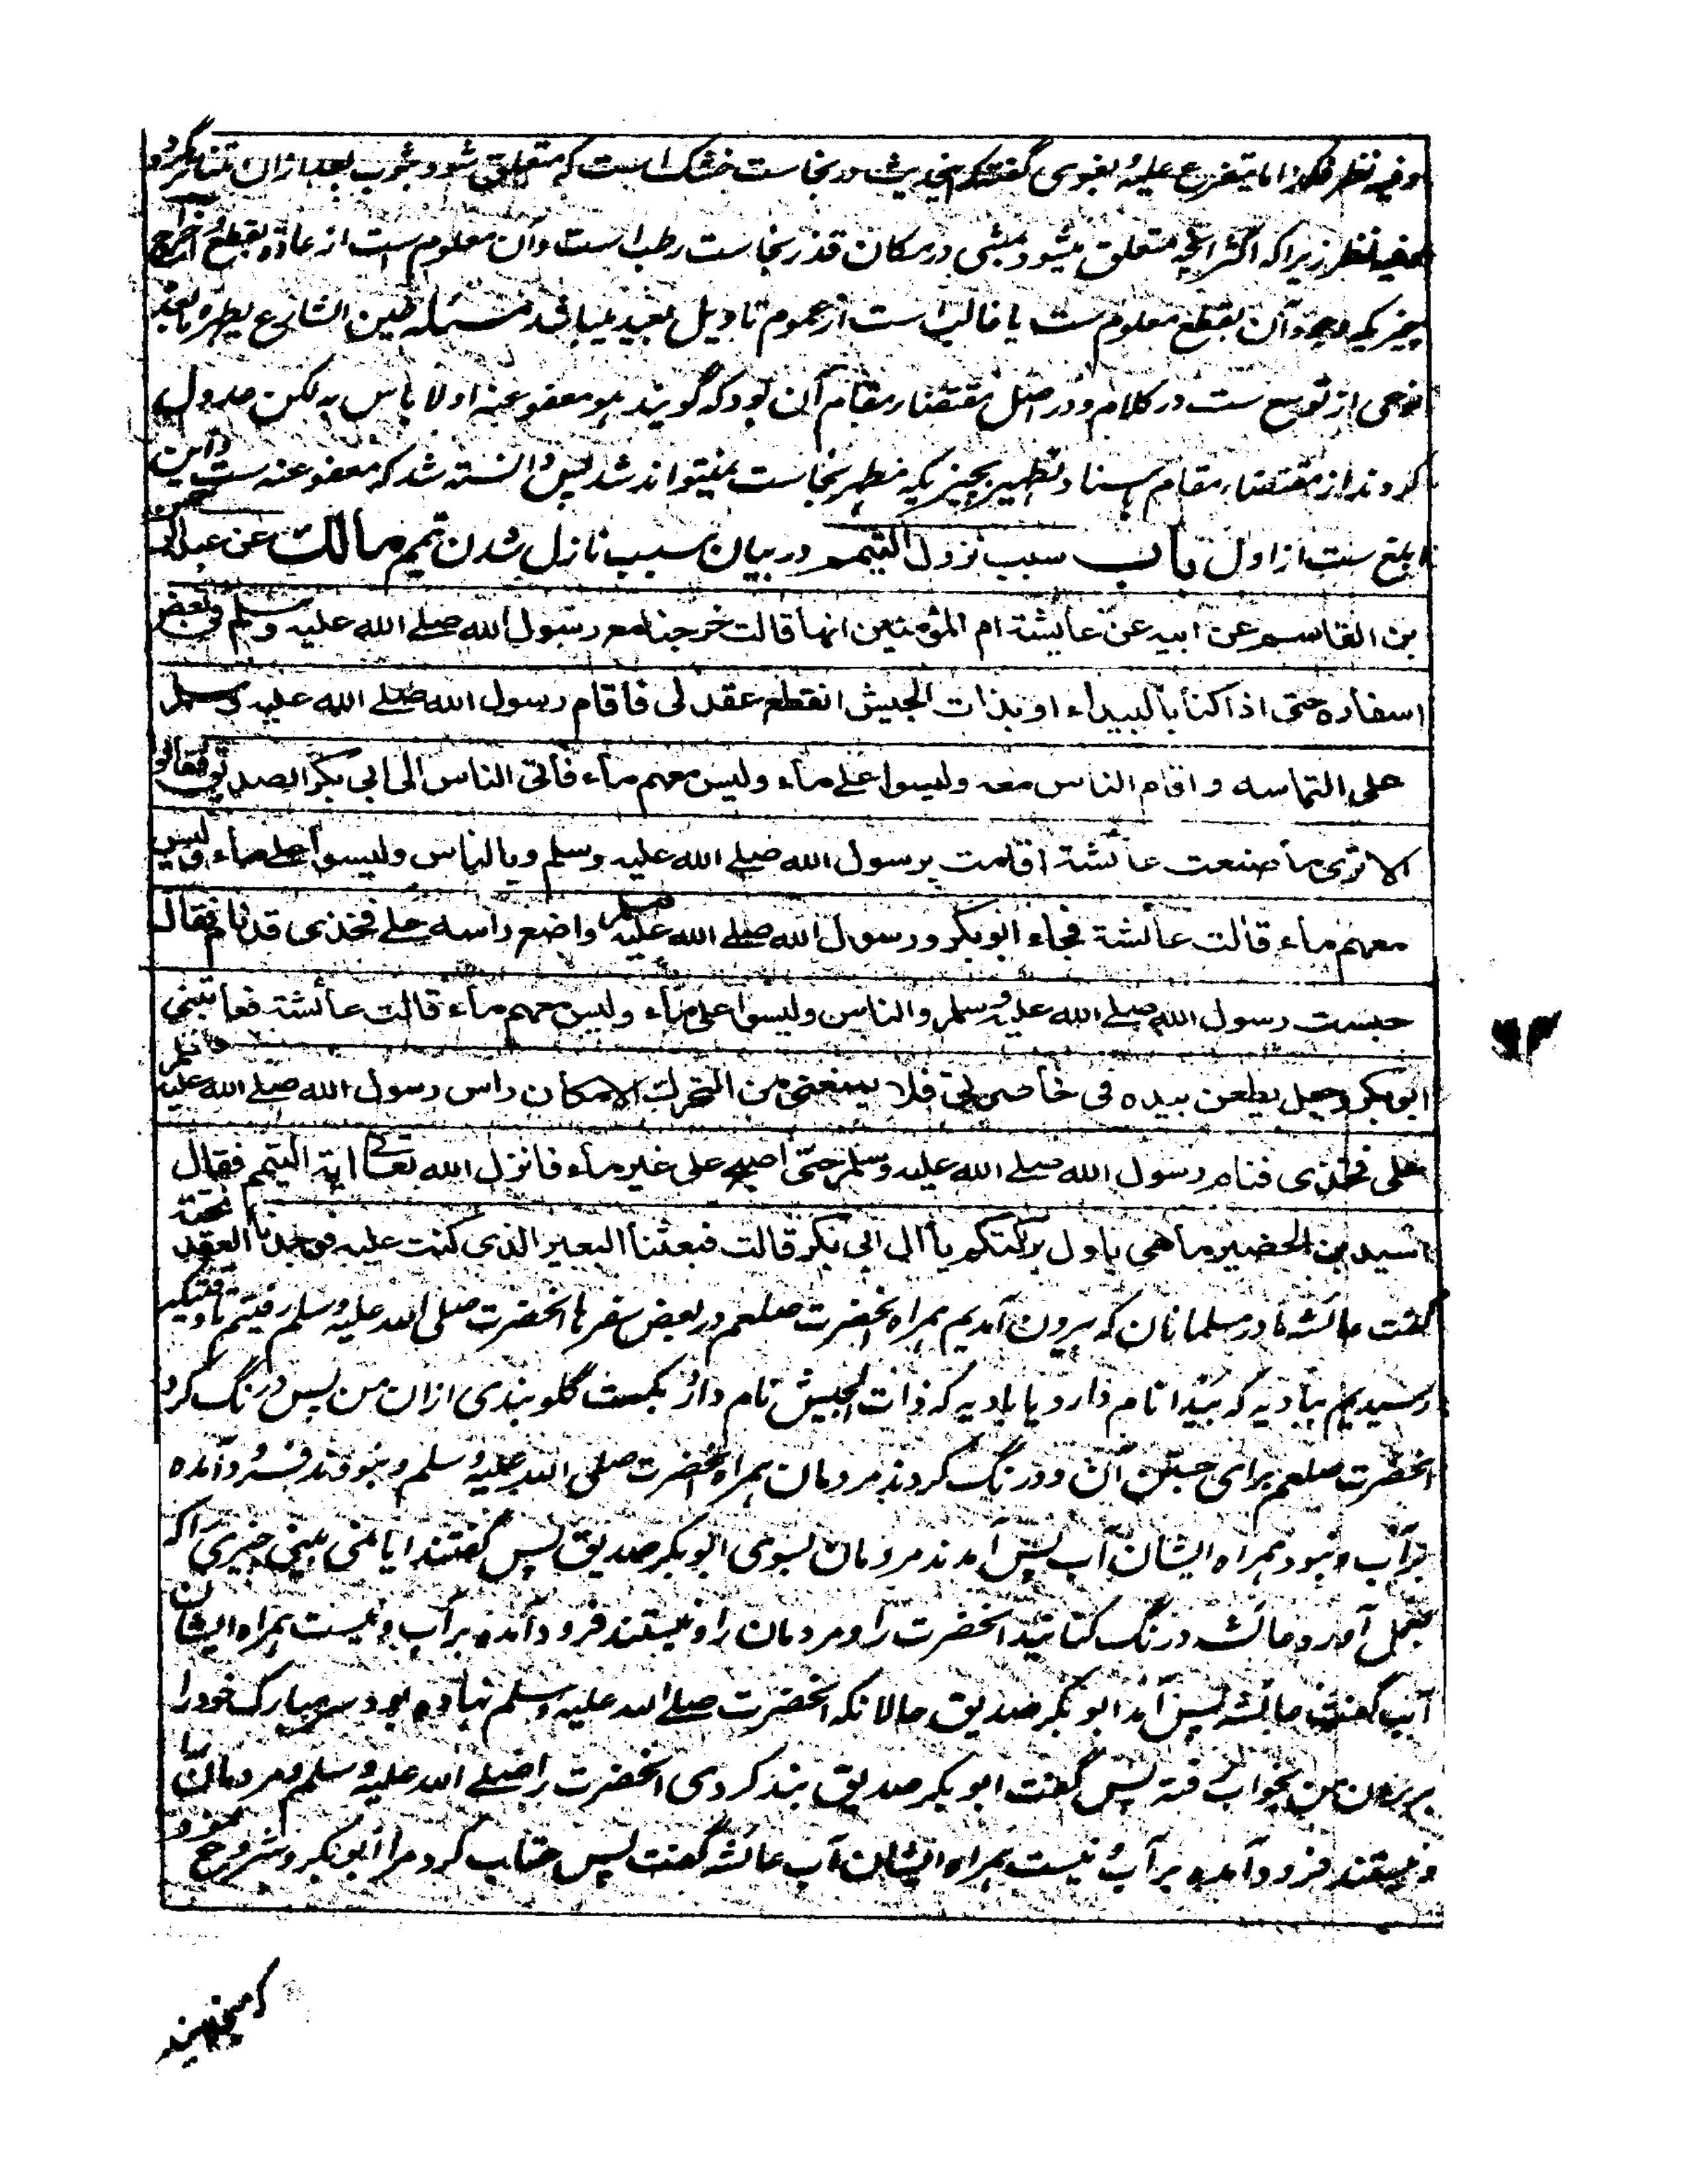 وفیه نظر فکذا ما یتفرع علیه بغوی گفته که این حدیث در نجاست خشک است که متعلق شود بثوب بعد ازان تناثر گردد
وفیه نظر زیرا که اکثر انچه متعلق میشود بمشی در مکان قذر نجاست رطب است وآن معلوم ست از عادة بقطع اخراج
چیزیکه وجود آن بقطع معلوم ست یا غالب است از عموم تاویل بعید میباشد مسئله طین الشارع یطهره ما بعد
نوعی از توسع ست در کلام ودر اصل مقتضاء مقام آن بود که گویند هو معفو عنه او لا باس به لکن عدول
کردند از مقتضاء مقام باسناد تطهیر بچیزیکه مطهر نجاست نمیتواند شد پس دانسته شد که معفو عنه ست واین
ابلغ ست از اول باب سبب نزول التیمم در بیان سبب نازل شدن تیمم مالك عن عبد الرحمن
بن القاسم عن ابیه عن عایشة ام المؤمنین انها قالت خرجنا مع رسول الله صلے الله علیه وسلم فی بعض
اسفاره حتی اذا کنا بالبیداء او بذات الجیش انقطع عقد لی فاقام رسول الله صلے الله علیه وسلم
علی التماسه واقام الناس معه ولیسوا علے ماء ولیس معهم ماء فاتی الناس الی ابی بکر الصدیق فقالوا
الا تری ما صنعت عائشة اقامت برسول الله صلے الله علیه وسلم وبالناس ولیسوا علے ماء ولیس
معهم ماء قالت عائشة فجاء ابو بکر ورسول الله صلے الله علیه وسلم واضع راسه علے فخذی قد نام فقال
حبست رسول الله صلے الله علیه وسلم والناس ولیسوا علی ماء ولیس معهم ماء قالت عائشة فعاتبنی
ابو بکر وجعل یطعن بیده فی خاصرتی فلا یمنعنی من التحرك الا مکان راس رسول الله صلے الله علیه وسلم
علی فخذی فنام رسول الله صلے الله علیه وسلم حتی اصبح علی غیر ماء فانزل الله تعالے ایة التیمم فقال
اسید بن الحضیر ما هی باول برکتکم یا ال ابی بکر قالت فبعثنا البعیر الذی کنت علیه فوجدنا العقد تحته
گفت عائشه مادر مسلمانان که بیرون آمدیم همراه آنحضرت صلعم در بعض سفرها آنحضرت صلی الله علیه وسلم رفتیم تا وقتیکه
رسیدیم ببادیه که بیدا نام دارد یا بادیه که ذات الجیش نام دارد بگسست گلوبندی ازان من پس درنگ کرد
آنحضرت صلعم برای جستن آن ودرنگ کردند مردمان همراه آنحضرت صلی الله علیه وسلم ونبودند فرود آمده
بر آب ونبود همراه ایشان آب پس آمدند مردمان بسوی ابو بکر صدیق پس گفتند ایا نمی بینی چیزی را که
بعمل آورد عائشه درنگ کنانید آنحضرت را ومردمان را ونیستند فرود آمده بر آب ونیست همراه ایشان
آب گفت عائشه پس آمد ابو بکر صدیق حالانکه آنحضرت صلے الله علیه وسلم نهاده بود سر مبارک خود را
بر ران من بخواب رفته پس گفت ابو بکر صدیق بند کردی آنحضرت را صلے الله علیه وسلم ومردمان را
ونیستند فرود آمده بر آب ونیست همراه ایشان آب عائشه گفت پس عتاب کرد مرا ابو بکر وشروع نمود